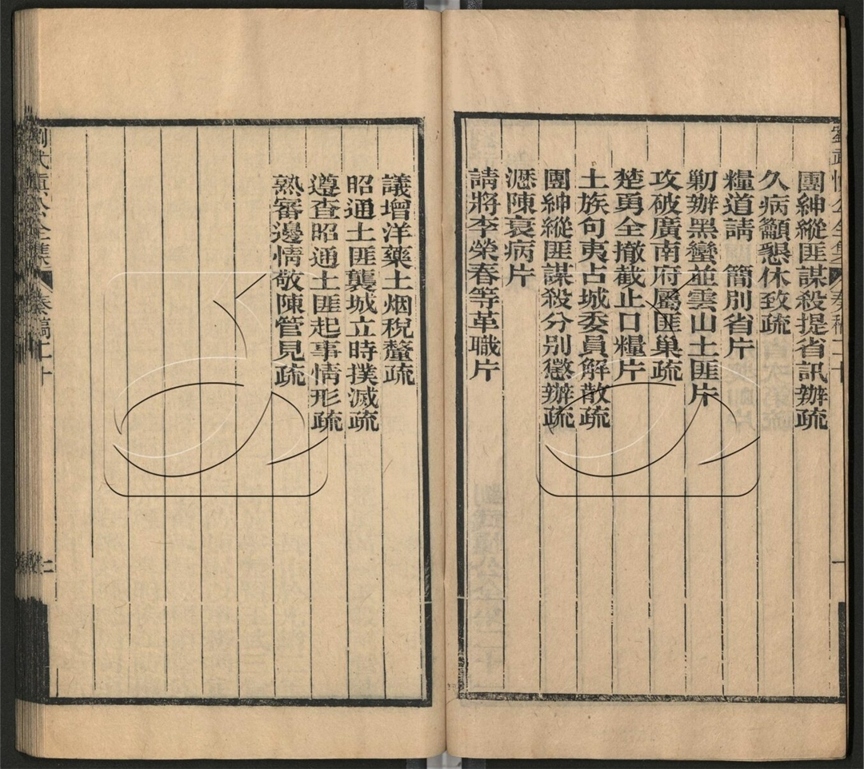 團紳縱匪謀殺提省訊辦疏
久病籲懇休致疏
糧道請　簡別省片
剿辦黑蠻並雲山土匪片
攻破廣南府屬匪巢疏
楚勇全撤截止口糧片
土族句夷占城委員解散疏
團紳縱匪謀殺分別懲辦疏
瀝陳衰病片
請將李榮春等革職片
議增洋藥土烟稅釐疏
昭通土匪襲城立時撲滅疏
遵查昭通土匪起事情形疏
熟審邊情敬陳管見疏